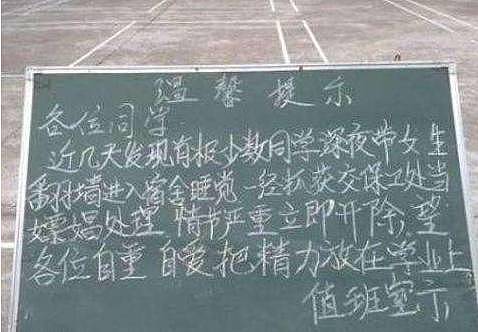 温馨提示
各位同学
近几天发现有极少数同学深夜带女生
翻墙进入宿舍睡觉一经抓获交保卫处当
嫖娼处理 情节严重立即开除,望
各位自重 自爱把精力放在学业上
值班室示